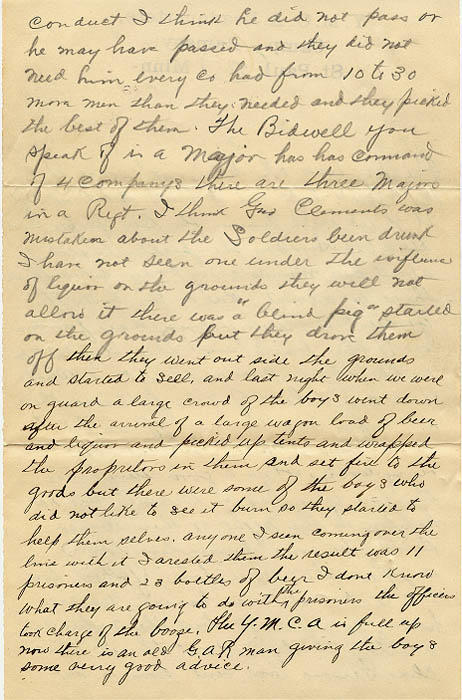 conduct I think he did not pass or
he may have passed and they did not
need him every Co had from 10 to 30
more men than they needed and they picked
the best of them. The Bidwell you
speak of is a Major has has command
of 4 Companys there are three Majors
in a Regt. I think Gus Clements was
mistaken about the Soldiers been drunk
I have not seen one under the influence
of liquor on the grounds they will not
allow it there was a "blind pig" started
on the grounds but they drove them
off then they went out side the grounds
and started to sell, and last night when we were
on guard a large crowd of the boys went down
after the arrival of a large wagon load of beer
and liquor and picked up tents and wrapped
the proprutors in them and set fire to the
goods but there were some of the boys who
did not like to see it burn so they started to
help them selves. anyone I seen coming over the
line with it I arested them the result was 11
prisoners and 23 bottles of beer I done know
what they are going to do with the prisoners the officers
took charge of the booze. The Y.M.C.A is full up
now there is an old G.A.R man giving the boys
some very good advice.